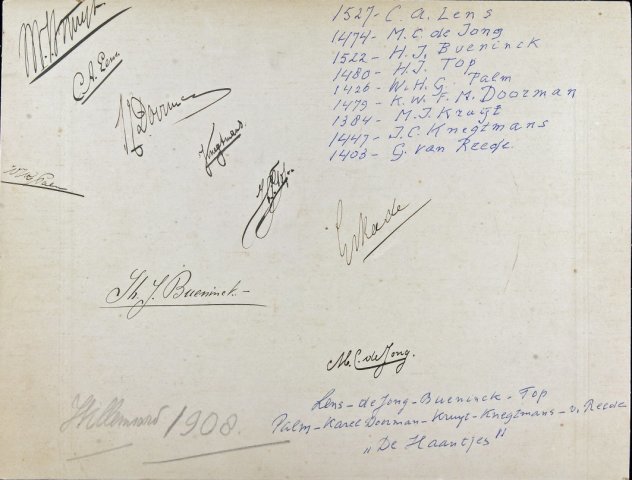 M.J. Kruyt
C. A. Lens
Doorman
Knegtmans.
1527- C. A. Lens
1474- M. C. de Jong
1522- H. J. Bueninck
1480- H. J. Top
1426- W. H. G. Palm
1479- K. W. F. M. Doorman
1384- M. J. Kruyt
1447- J. C. Knegtmans
1403- G. van Reede
Th. J. Bueninck-
M. C. de Jong.
Willemsoord 1908.
Lens-de Jong-Bueninck-Top
Palm-Karel Doorman-Kruyt-Knegtmans-v. Reede
„De Haantjes"